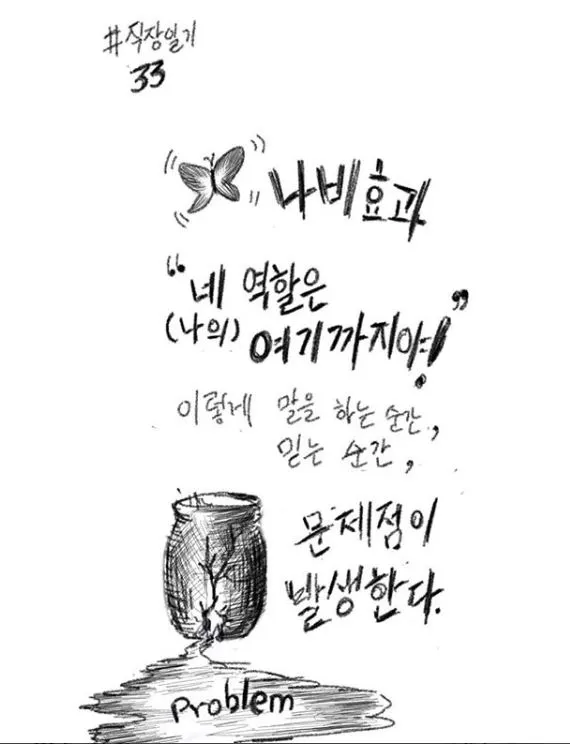 #직장일기
33
나비효과
“네 역할은
(나의) 여기까지야!”
이렇게 말을 하는 순간,
믿는 순간,
문제점이
발생한다.
problem